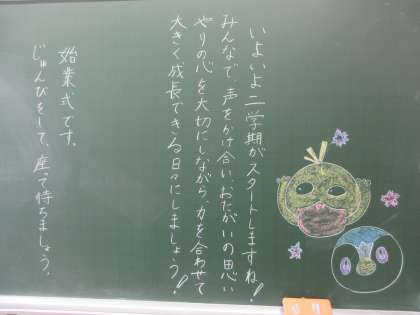 いよいよ二学期がスタートしますね！
みんなで、声をかけ合い、おたがいの思い
やりの心を大切にしながら、力を合わせて
大きく成長できる日々にしましょう！
始業式です。
じゅんびをして、座って待ちましょう。